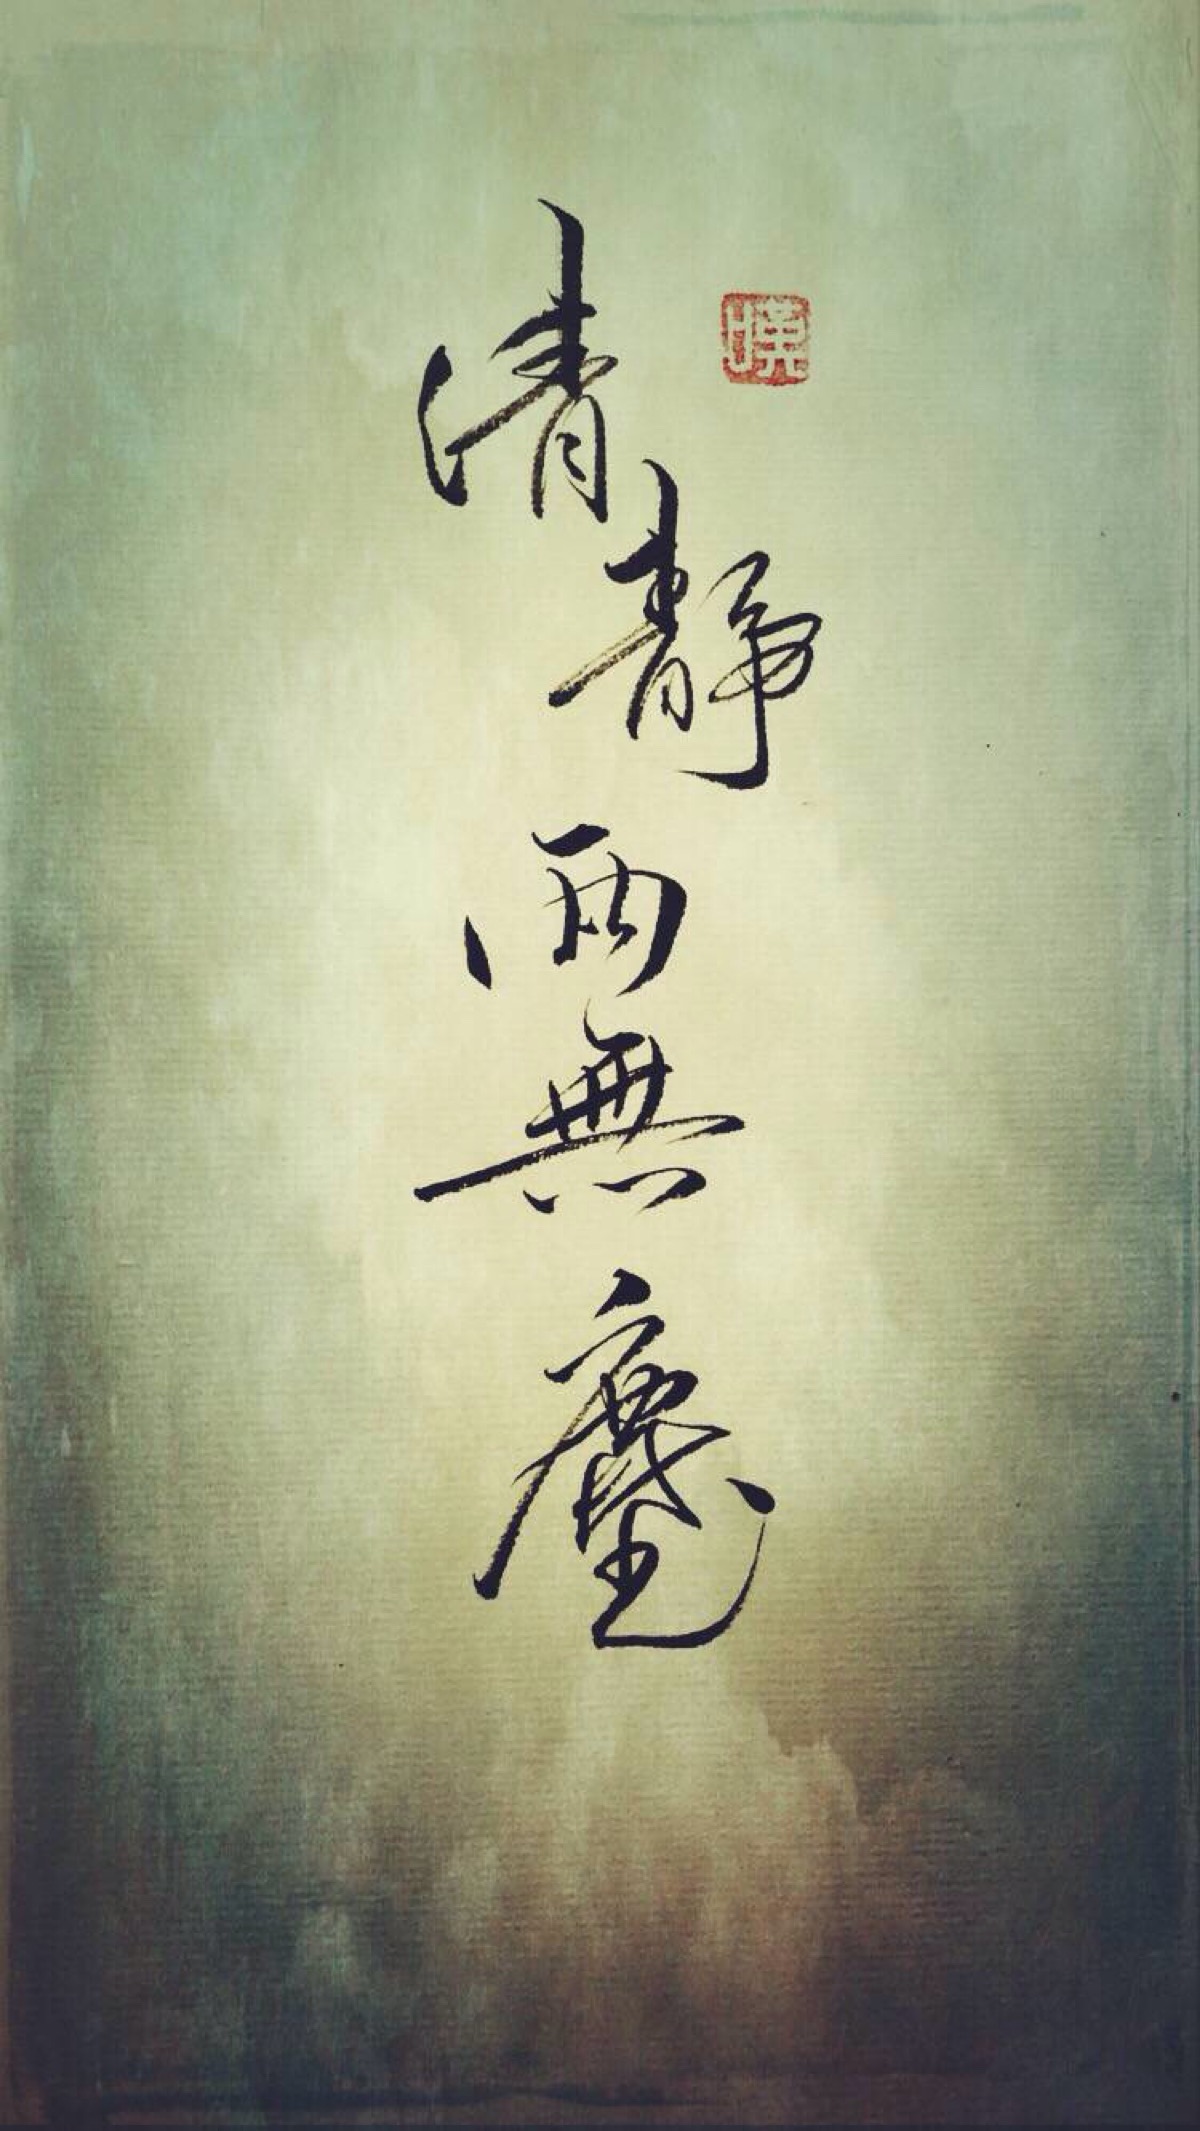 清靜兩無塵